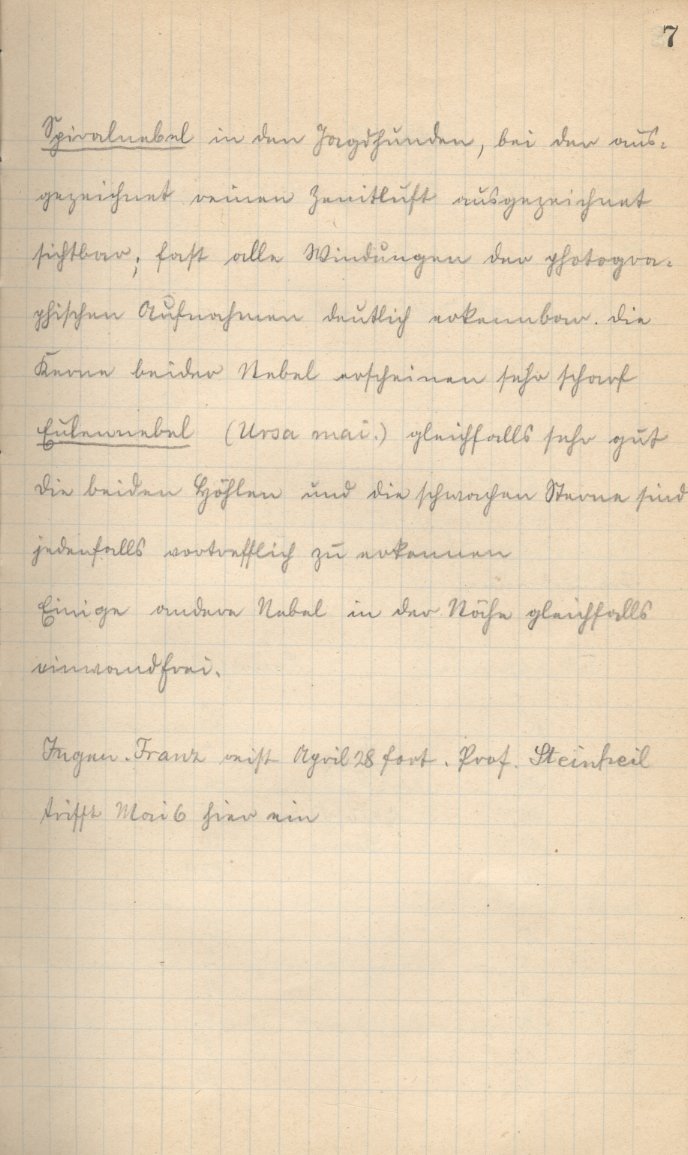 7
Spiralnebel in den Jagdhunden, bei der aus-
gezeichnet reinen Zenitluft ausgezeichnet
sichtbar; fast alle Windungen der photogra-
phischen Aufnahmen deutlich erkennbar. Die
Kerne beider Nebel erscheinen sehr scharf
Eulennebel (Ursa mai.) gleichfalls sehr gut
die beiden Höhlen und die schwachen Sterne sind
jedenfalls vortrefflich zu erkennen
Einige andere Nebel in der Nähe gleichfalls
einwandfrei.
Ingen. Franz reist April 28 fort. Prof. Steinheil
trifft Mai 6 hier ein